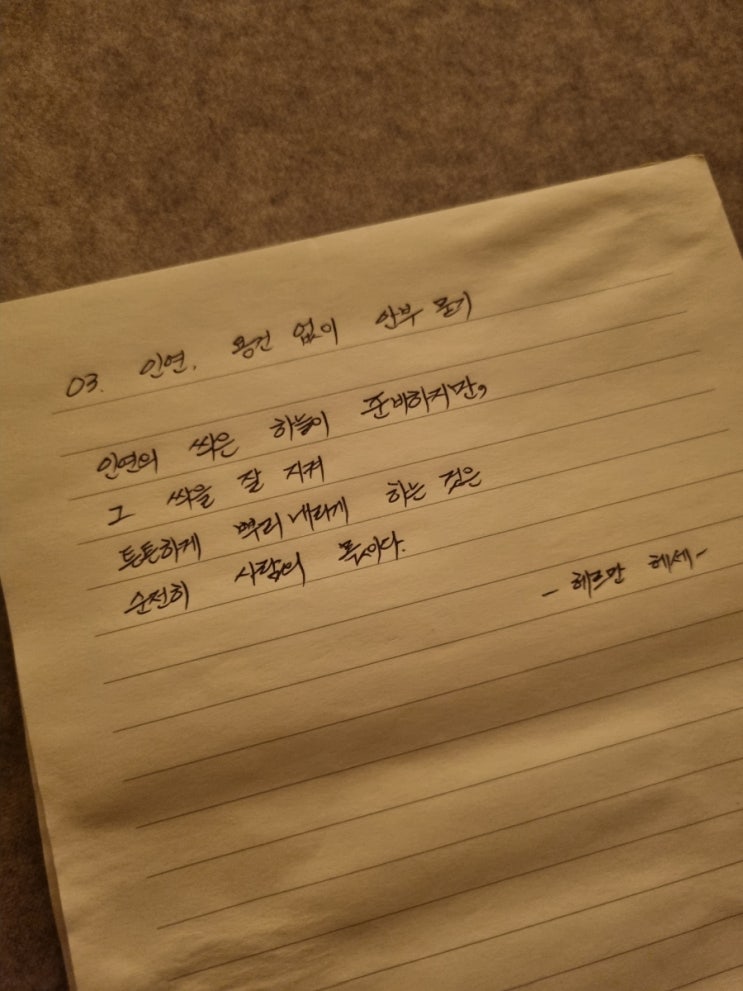 03. 인연, 용건 없이 안부 묻기
인연의 싹은 하늘이 준비하지만,
그 싹을 잘 지켜
튼튼하게 뿌리 내리게 하는 것은
순전히 사람의 몫이다.
- 헤르만 헤세 -